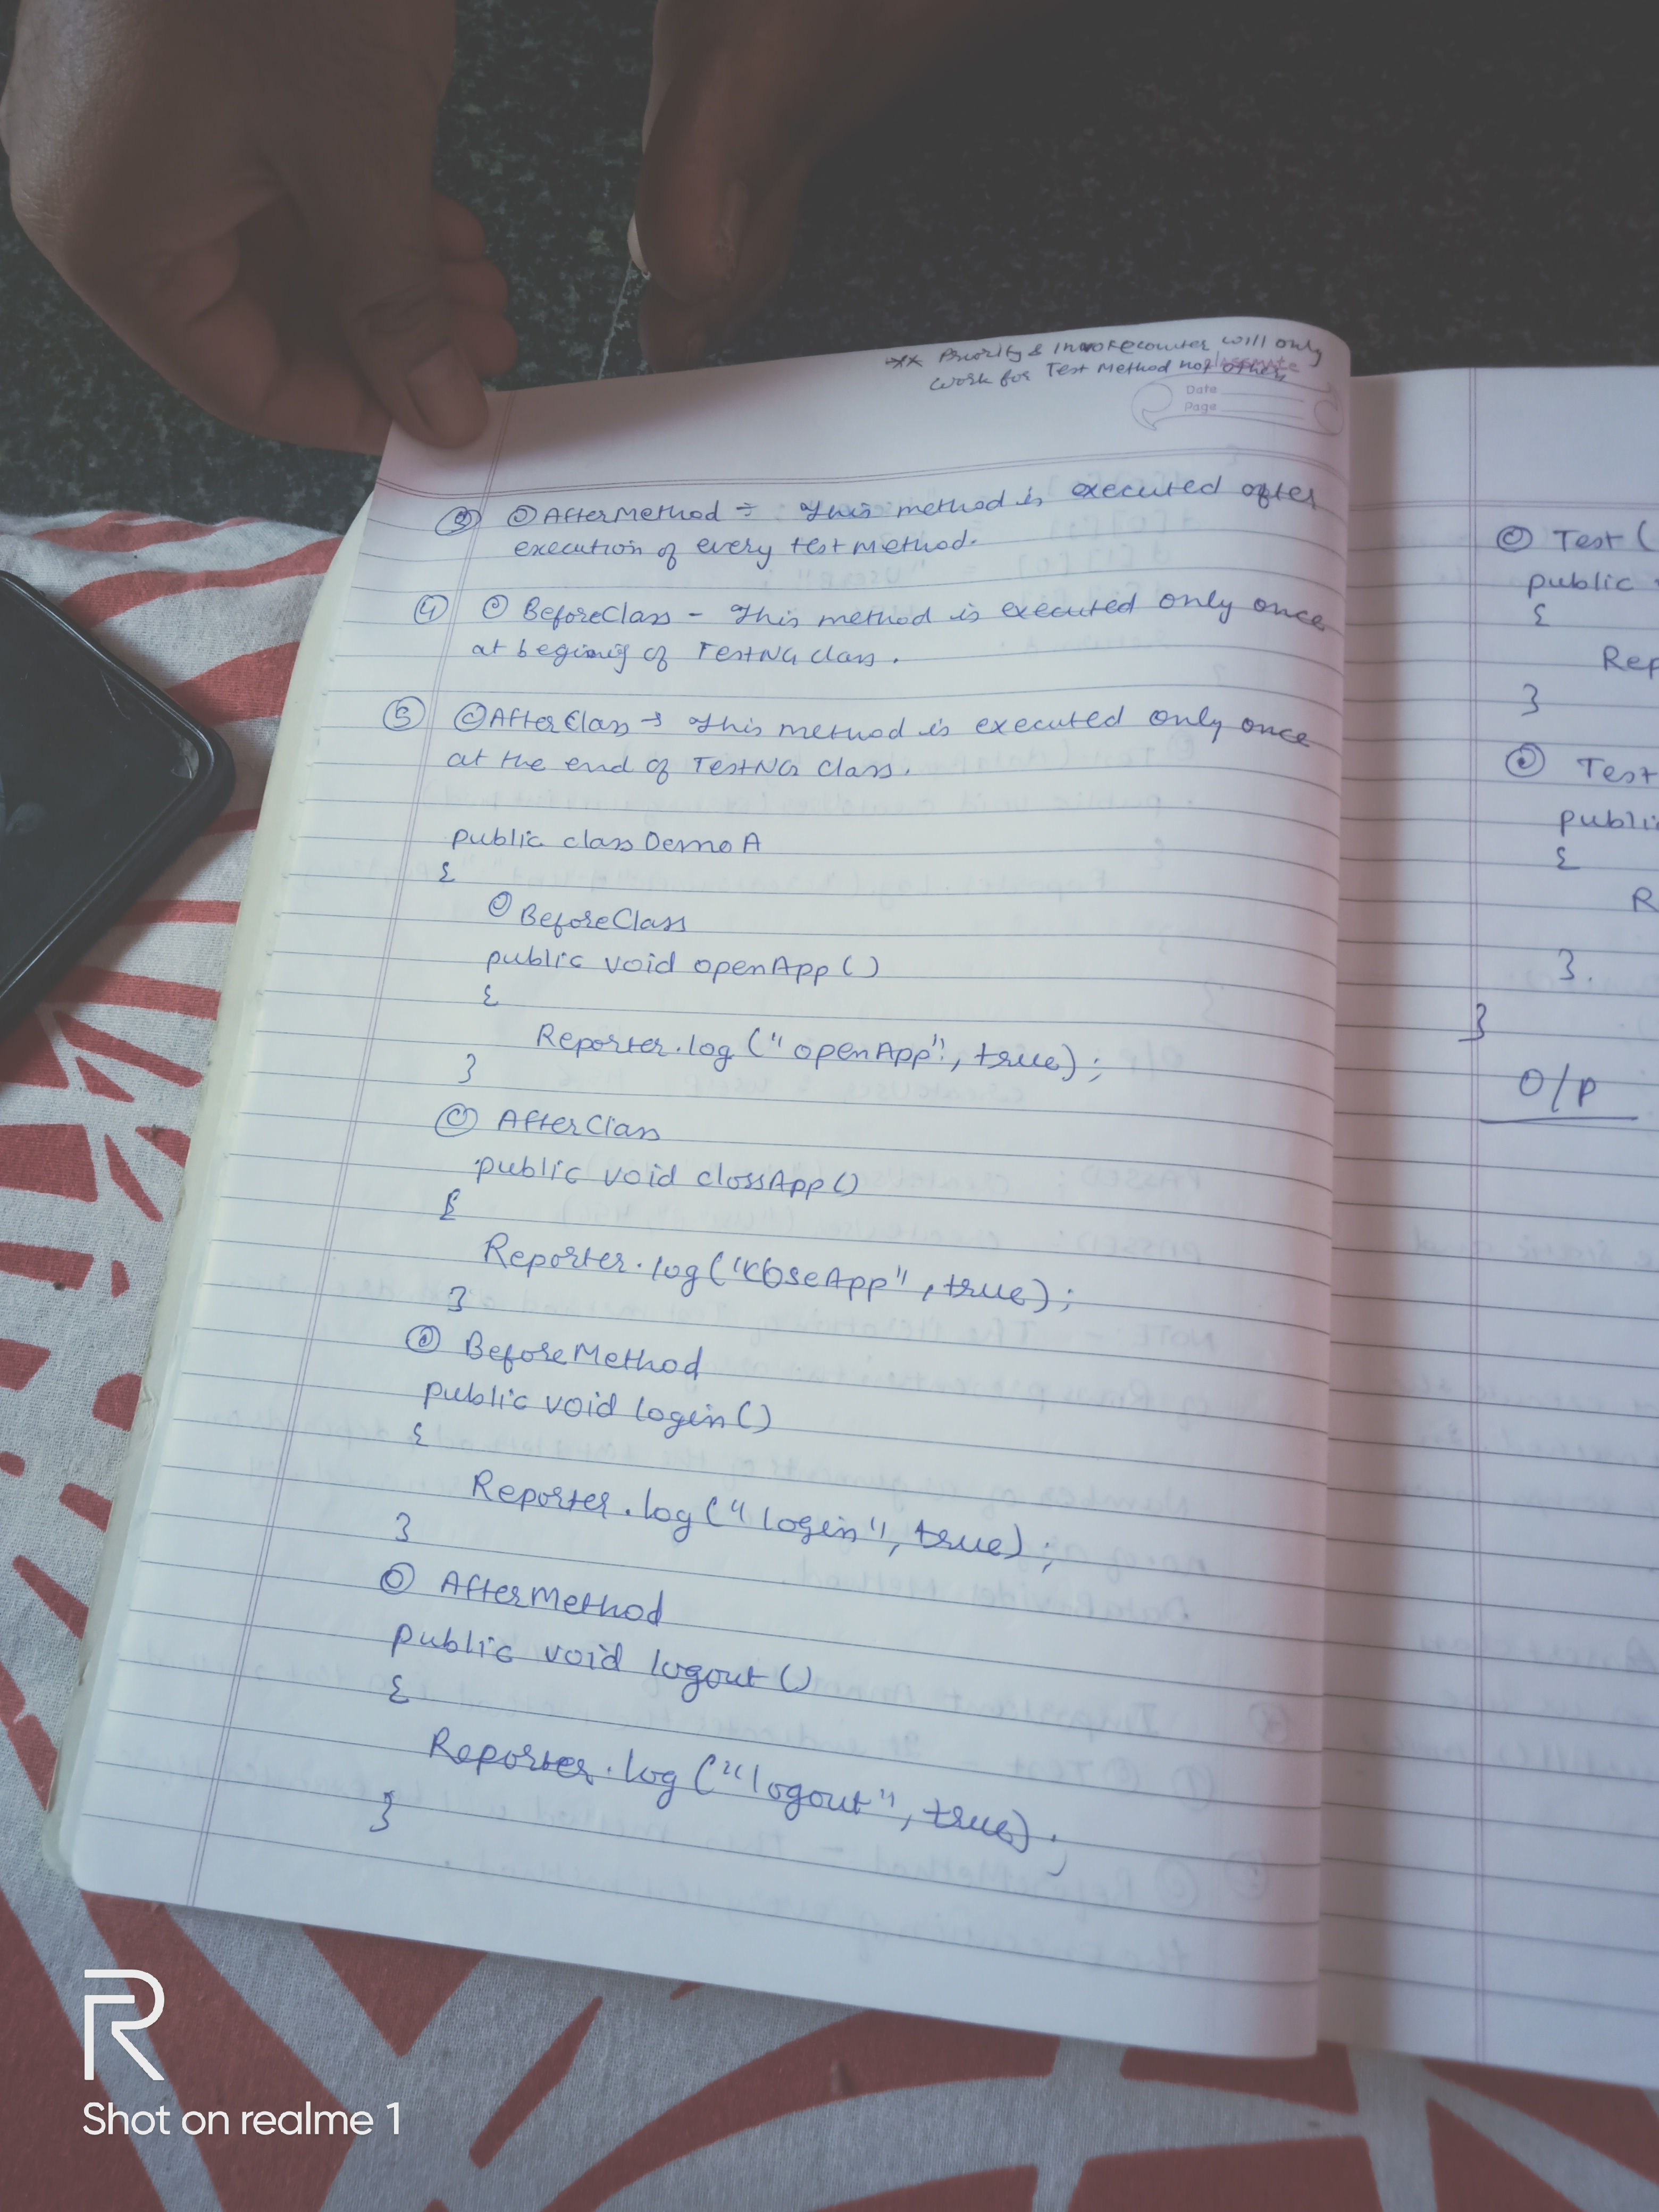 ** Priority & Invokecounter will only
work for Test Method not others
classmate
Date
Page
③ @AfterMethod ÷ This method is executed after
execution of every test method.
④ @ BeforeClass - This method is executed only once
at begining of TestNG class.
⑤ @AfterClass → This method is executed only once
at the end of TestNG class.
public class DemoA
{
@BeforeClass
public void openApp ()
{
Reporter.log ("openApp", true);
}
@ AfterClass
public void clossApp()
{
Reporter.log ("closeApp", true);
}
@ BeforeMethod
public void login ()
{
Reporter.log ("login", true);
}
@ AfterMethod
public void logout ()
{
Reporter.log ("logout", true);
}
@ Test (
public
{
Rep
}
@ Test
public
{
R
}.
}
O/P
R
Shot on realme 1